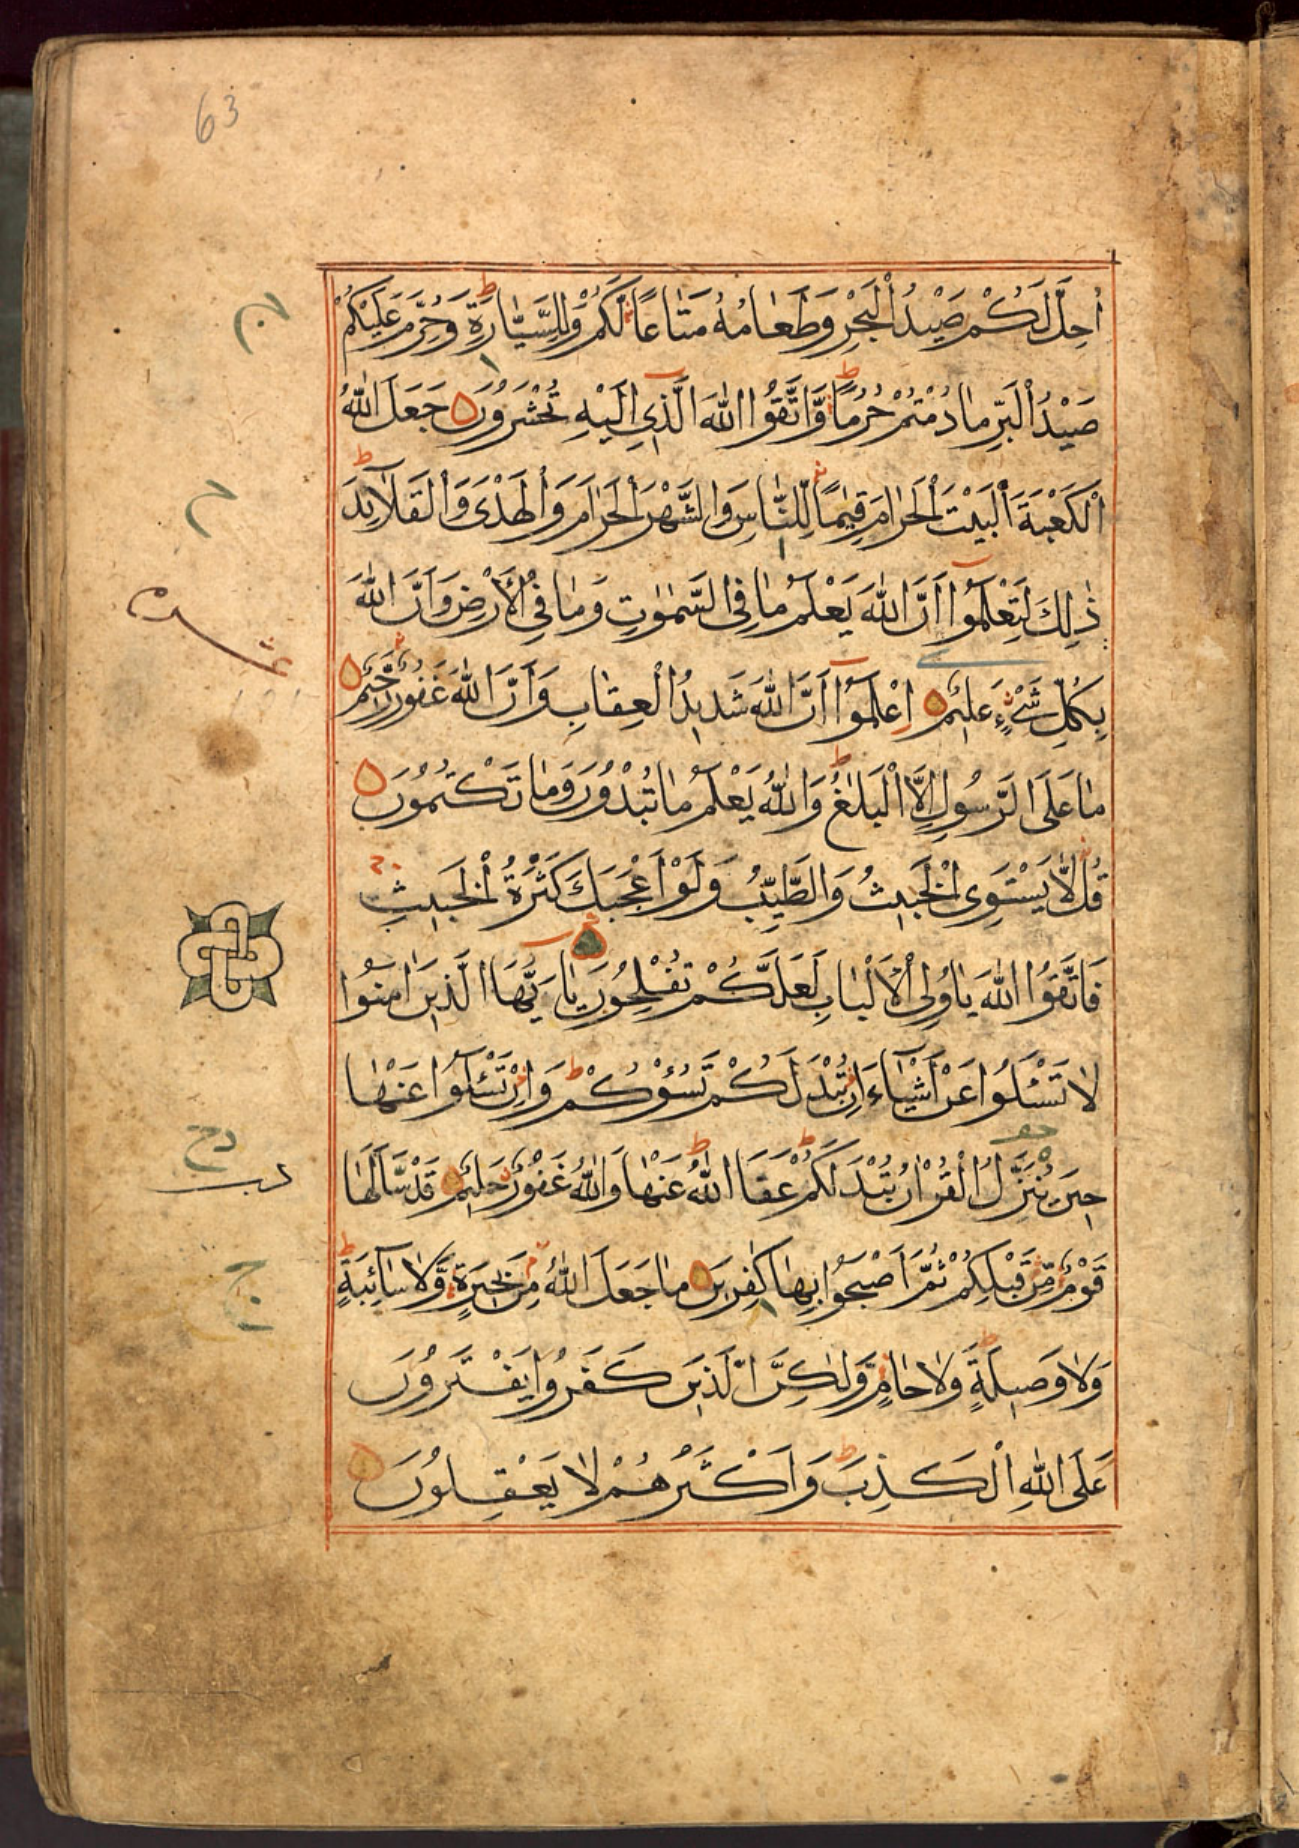 63
أُحِلَّ لَكُمْ صَيْدُ الْبَحْرِ وَطَعَامُهُ مَتَاعًا لَّكُمْ وَلِلسَّيَّارَةِ وَحُرِّمَ عَلَيْكُمْ
صَيْدُ الْبَرِّ مَا دُمْتُمْ حُرُمًا وَّاتَّقُوا اللّٰهَ الَّذِي إِلَيْهِ تُحْشَرُونَ جَعَلَ اللّٰهُ
الْكَعْبَةَ الْبَيْتَ الْحَرَامَ قِيٰمًا لِّلنَّاسِ وَالشَّهْرَ الْحَرَامَ وَالْهَدْىَ وَالْقَلَآئِدَ
ذٰلِكَ لِتَعْلَمُوٓا أَنَّ اللّٰهَ يَعْلَمُ مَا فِي السَّمٰوٰتِ وَمَا فِي الْأَرْضِ وَأَنَّ اللّٰهَ
عشره
بِكُلِّ شَيْءٍ عَلِيمٌ اِعْلَمُوٓا أَنَّ اللّٰهَ شَدِيدُ الْعِقَابِ وَأَنَّ اللّٰهَ غَفُورٌ رَّحِيمٌ
مَا عَلَى الرَّسُولِ إِلَّا الْبَلٰغُ وَاللّٰهُ يَعْلَمُ مَا تُبْدُونَ وَمَا تَكْتُمُونَ
قُل لَّا يَسْتَوِى الْخَبِيثُ وَالطَّيِّبُ وَلَوْ أَعْجَبَكَ كَثْرَةُ الْخَبِيثِ
فَاتَّقُوا اللّٰهَ يَاأُولِى الْأَلْبَابِ لَعَلَّكُمْ تُفْلِحُونَ يَآ أَيُّهَا الَّذِينَ اٰمَنُوا
لَا تَسْـَٔلُوا عَنْ أَشْيَآءَ إِن تُبْدَ لَكُمْ تَسُؤْكُمْ وَإِن تَسْـَٔلُوا عَنْهَا
حِينَ يُنَزَّلُ الْقُرْاٰنُ تُبْدَ لَكُمْ عَفَا اللّٰهُ عَنْهَا وَاللّٰهُ غَفُورٌ حَلِيمٌ قَدْ سَأَلَهَا
قَوْمٌ مِّن قَبْلِكُمْ ثُمَّ أَصْبَحُوا بِهَا كٰفِرِينَ مَا جَعَلَ اللّٰهُ مِن بَحِيرَةٍ وَّلَا سَآئِبَةٍ
وَلَا وَصِيلَةٍ وَلَا حَامٍ وَّلٰكِنَّ الَّذِينَ كَفَرُوا يَفْتَرُونَ
عَلَى اللّٰهِ الْكَذِبَ وَأَكْثَرُهُمْ لَا يَعْقِلُونَ